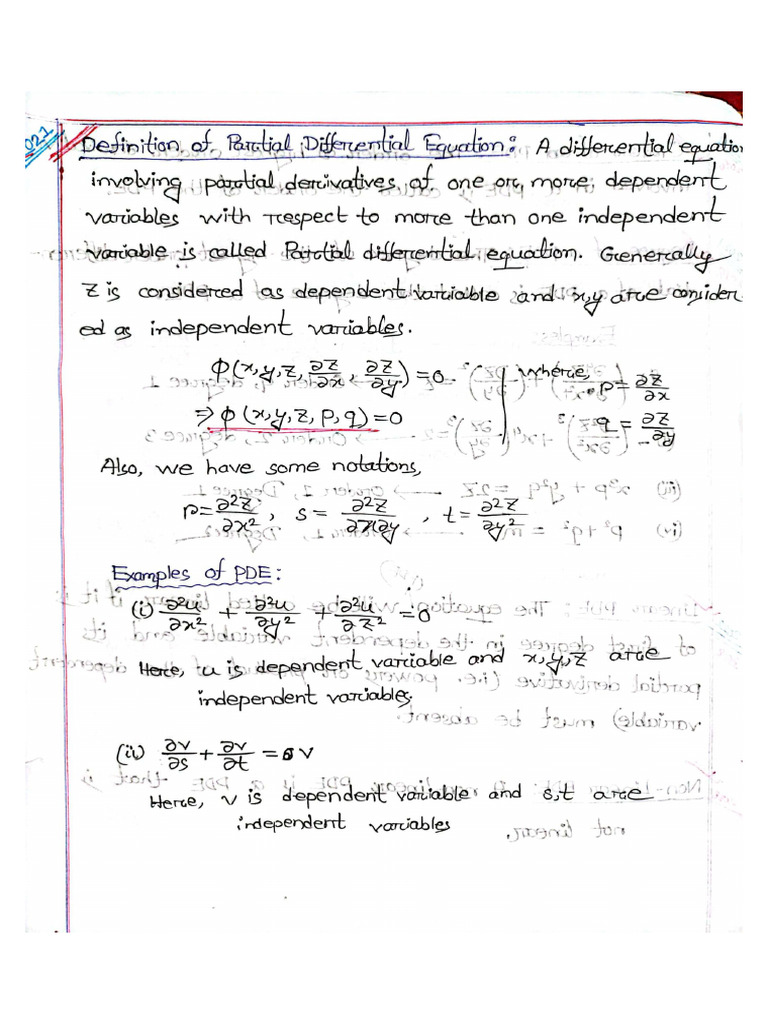 021
Definition of Partial Differential Equation: A differential equation
involving partial derivatives of one or more dependent
variables with respect to more than one independent
variable is called Partial differential equation. Generally
Z is considered as dependent variable and x,y are consider
ed as independent variables.
Φ(x, y, z, ∂z/∂x, ∂z/∂y) = 0. where, p = ∂z/∂x
⇒ Φ (x, y, z, p, q) = 0 q = ∂z/∂y
Also, we have some notations,
r = ∂²z/∂x² , s = ∂²z/∂x∂y , t = ∂²z/∂y²
Examples of PDE:
(i) ∂²u/∂x² + ∂²u/∂y² + ∂²u/∂z² = 0
Here, u is dependent variable and x, y, z are
independent variables.
(ii) ∂v/∂s + ∂v/∂t = v
Here, v is dependent variable and s,t are
independent variables